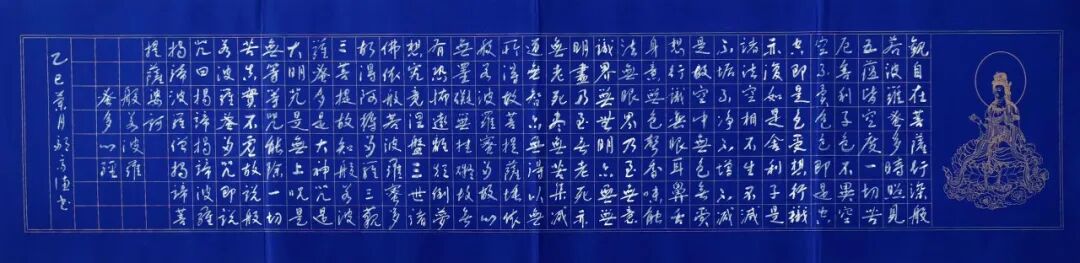 觀自在菩薩行深般
若波羅蜜多時照見
五蘊皆空度一切苦
厄舍利子色不異空
空不異色色即是空
空即是色受想行識
亦復如是舍利子是
諸法空相不生不滅
不垢不淨不增不減
是故空中無色無受
想行識無眼耳鼻舌
身意無色聲香味觸
法無眼界乃至無意
識界無無明亦無無
明盡乃至無老死亦
無老死盡無苦集滅
道無智亦無得以無
所得故菩提薩埵依
般若波羅蜜多故心
無罣礙無罣礙故無
有恐怖遠離顛倒夢
想究竟涅槃三世諸
佛依般若波羅蜜多
故得阿耨多羅三藐
三菩提故知般若波
羅蜜多是大神咒是
大明咒是無上咒是
無等等咒能除一切
苦真實不虛故說般
若波羅蜜多咒即說
咒曰揭諦揭諦波羅
揭諦波羅僧揭諦菩
提薩婆訶
般若波羅
蜜多心經
乙巳景月